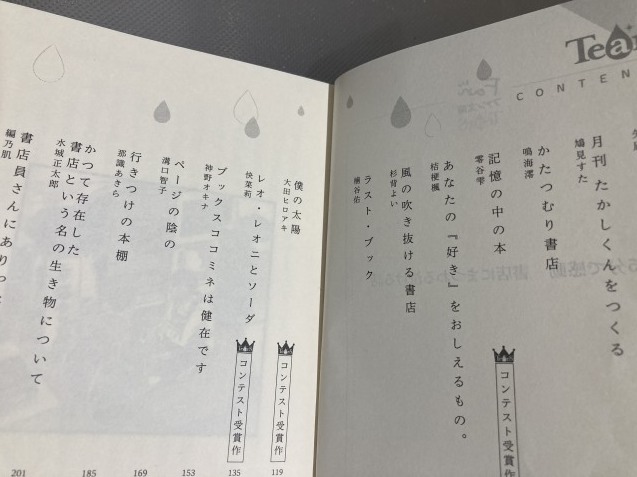 Tea
CONTEN
月刊 たかしくんをつくる
鳩見すた
かたつむり書店
鳴海澪
記憶の中の本
零谷雫
あなたの『好き』をおしえるもの。
桔梗楓
コンテスト受賞作
風の吹き抜ける書店
杉背よい
ラスト・ブック
僕の太陽
大田ヒロアキ
コンテスト受賞作
119
レオ・レオニとソーダ
快菜莉
コンテスト受賞作
135
ブックスココミネは健在です
神野オキナ
153
ページの陰の
溝口智子
169
行きつけの本棚
那識あきら
185
かつて存在した
書店という名の生き物について
水城正太郎
201
書店員さんにありっ
編乃肌